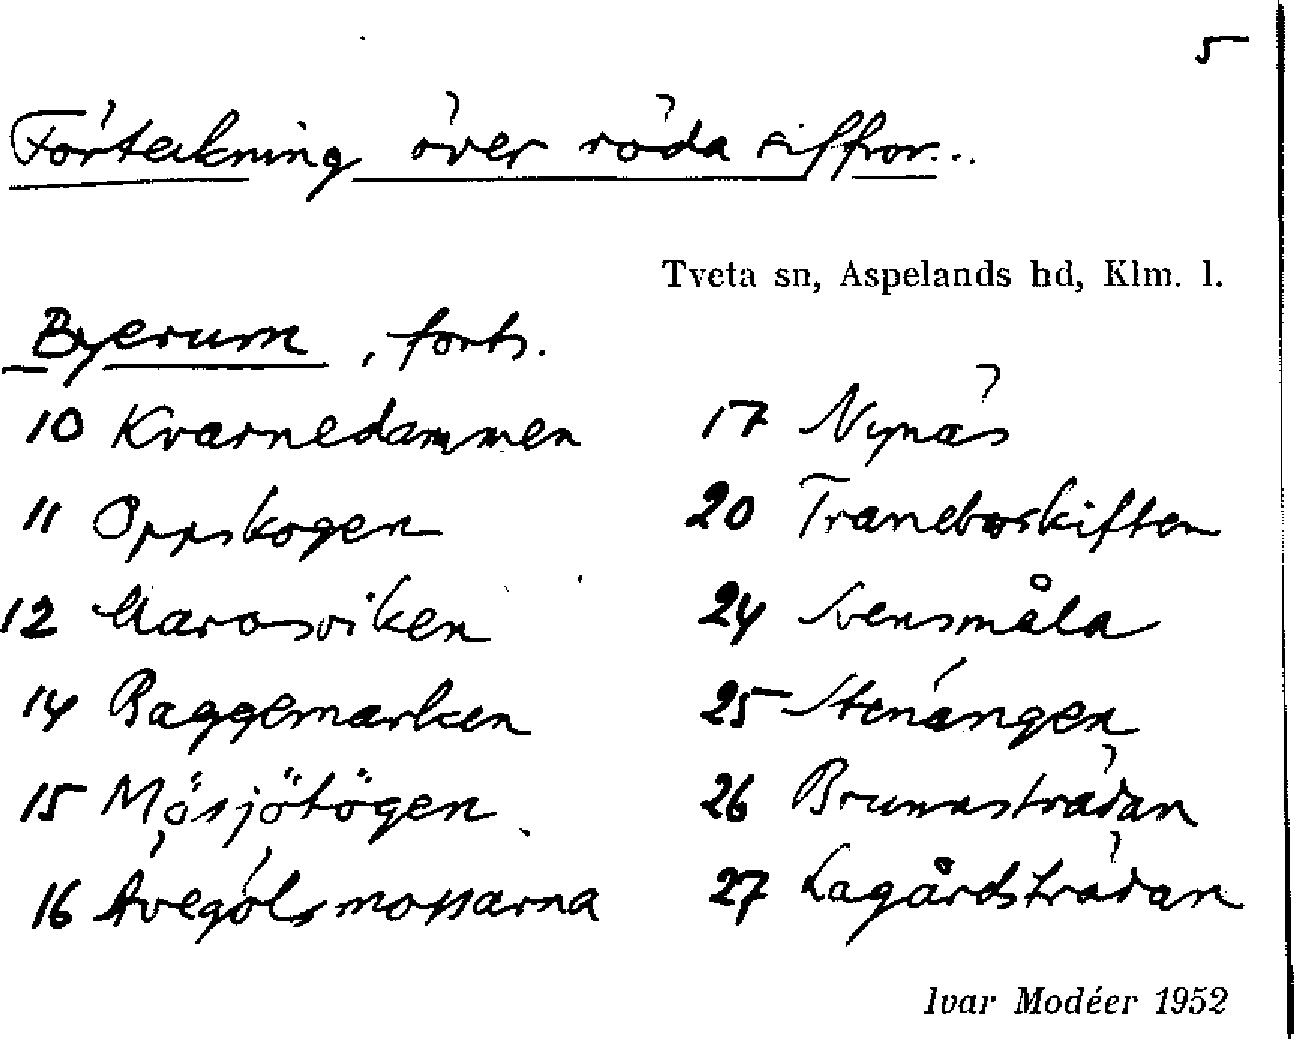 5
Förteckning över röda siffror...
Tveta sn, Aspelands hd, Klm. l.
Byerum, forts.
10 Kvarnedammen
11 Oppskogen
12 Marosviken
14 Baggemarken
15 Mösjötögen
16 Ävegölsmossarna
17 Nynäs
20 Traneboskiften
24 Svensmåla
25 Stenängen
26 Brunnsträdan
27 Lagårdsträdan
Ivar Modéer 1952